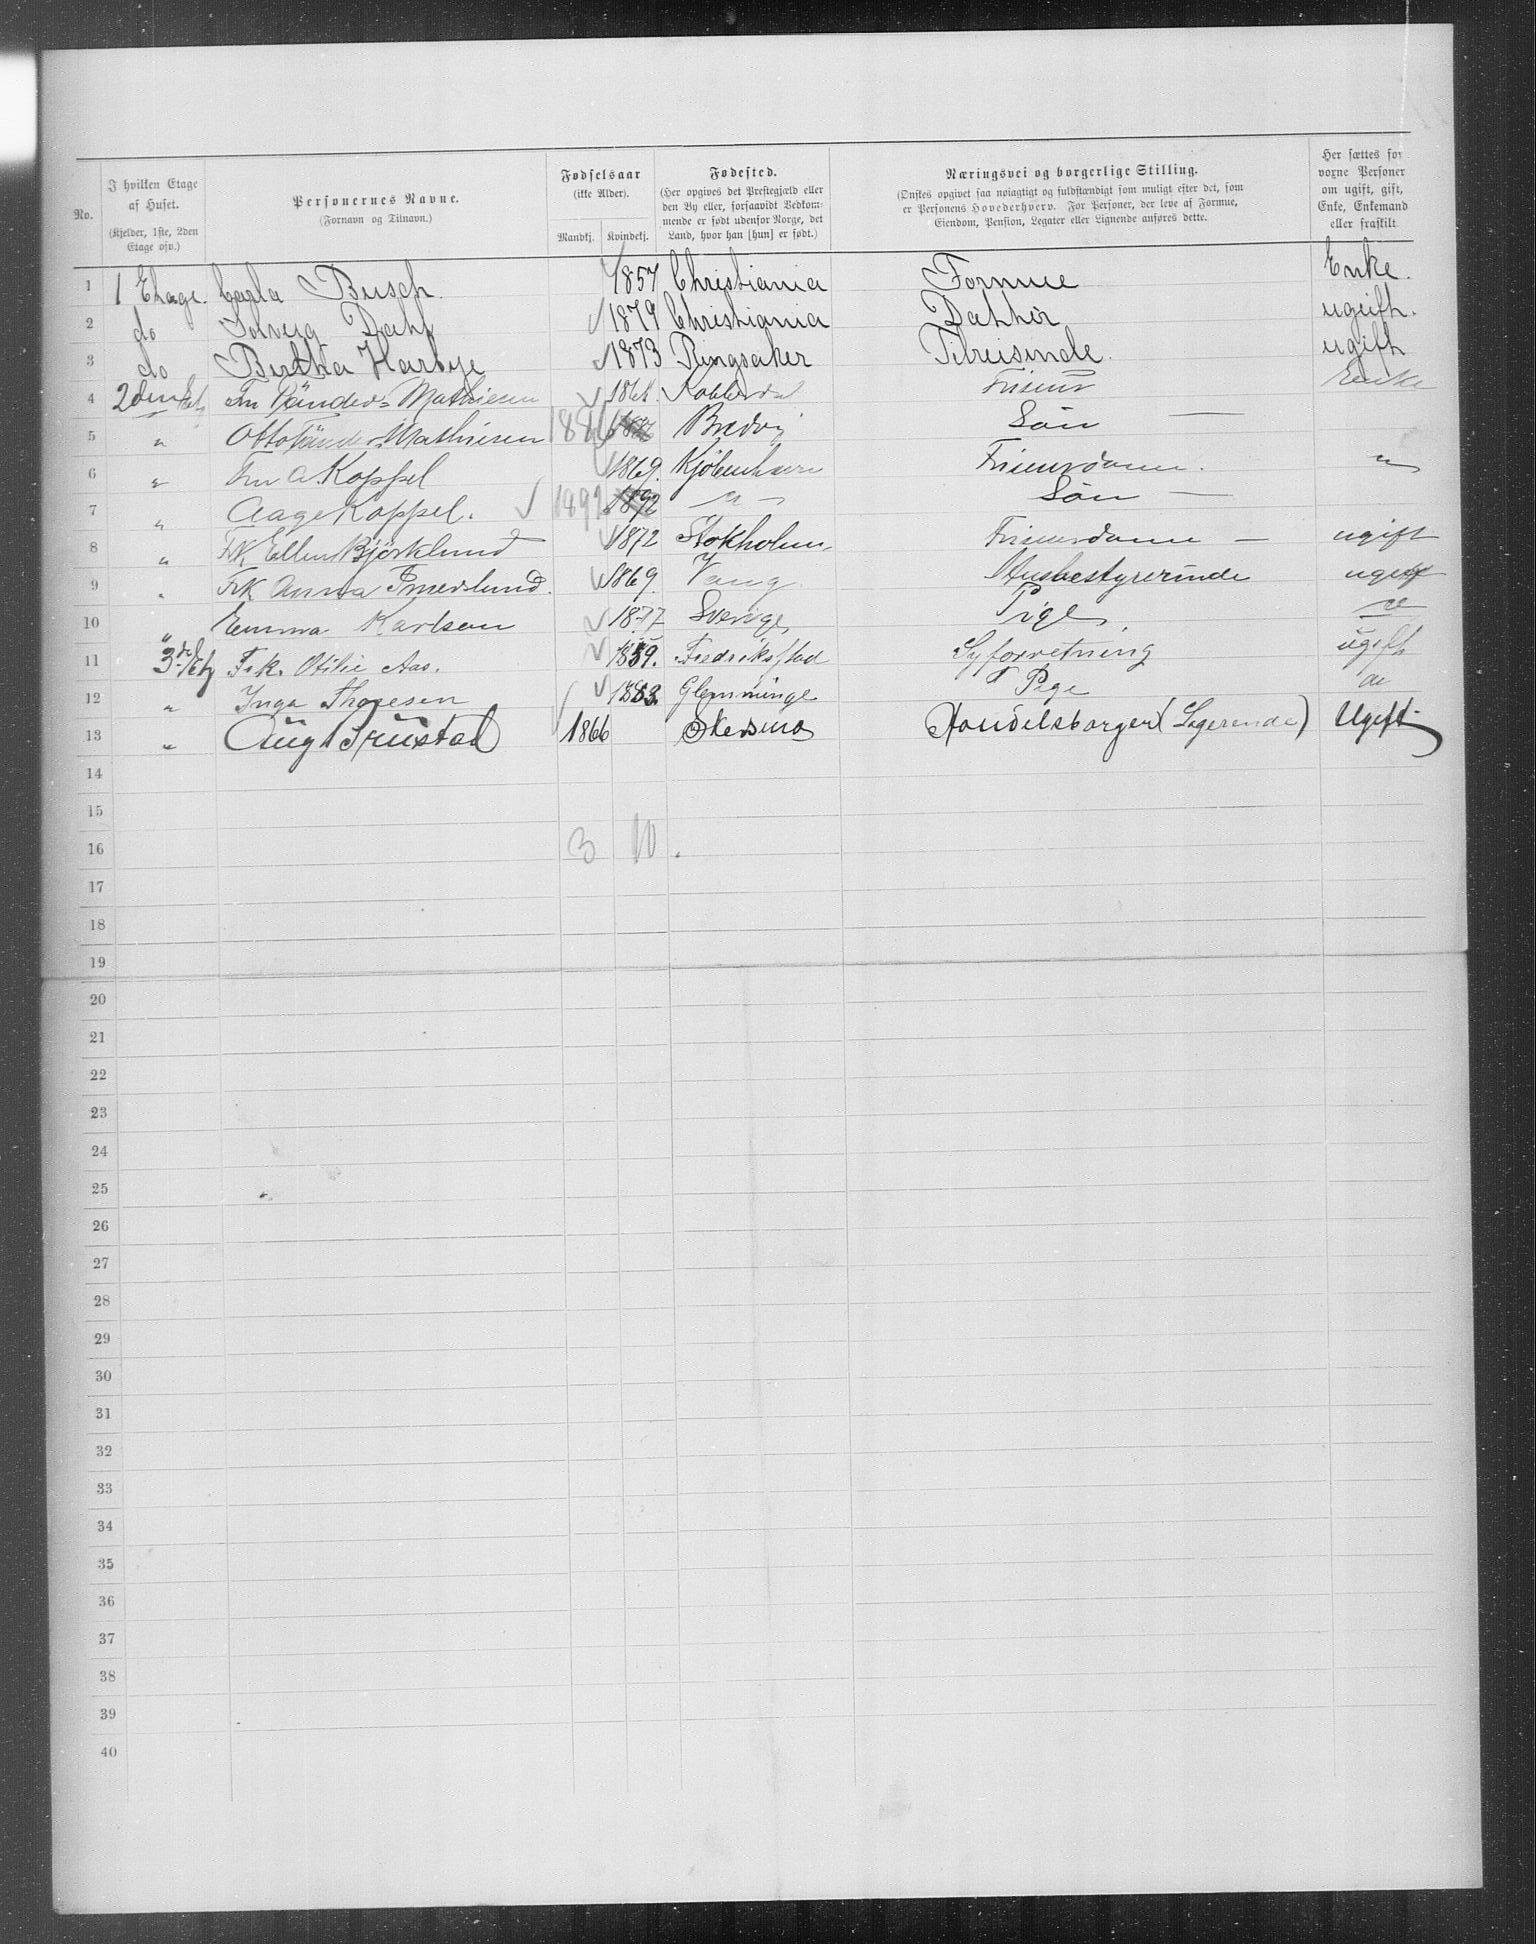 No.
I hvilken Etage af Huset. (Kjelder, 1ste, 2den Etage osv.)
Personernes Navne. (Fornavn og Tilnavn.)
Fødselsaar (ikke Alder). Mandkj. Kvindekj.
Fødested. (Her opgives det Prestegjæld eller den By eller, forsaavidt Vedkommende er født udenfor Norge, det Land, hvor han [hun] er født.)
Næringsvei og borgerlige Stilling. (Ønskes opgivet saa nøiagtigt og fuldstændigt som muligt efter det, som er Personens Hovederhverv. For Personer, der leve af Formue, Eiendom, Pension, Legater eller Lignende anføres dette.)
Her sættes for voxne Personer om ugift, gift, Enke, Enkemand eller fraskilt
1 1 Etage. Carla Busch 1857 Christiania Formue Enke.
2 do Solveig Dahl 1879 Christiania Datter ugift.
3 do Bertha Harbye 1873 Ringsaker Tilreisende. ugift
4 2den Etg Fru Tønder= Mathiesen Friseur Enke
5 " Otto Tønder Mathiesen Søn —
6 " Fru A. Koppel 1869. Kjøbenhavn Friseurdame. "
7 " Aage Koppel. 1892 1892 " Søn —
8 " Frk Ellen Björklund 1872 Stokholm Friseurdame — ugift
9 " Frk Anna 1869. Vang Husbestyrerinde ugift
10 " Emma Karlsen 1877 Sverige Pige "
11 3de Etg Frk. Otilie Aas. 1859. Fredrikstad Syforretning ugift
12 " Inga Thoresen 1883 Glemminge Pige do
13 " Aug. 1866 Skedsmo Handelsborger (Logerende) Ugift
14
15
16 3 10.
17
18
19
20
21
22
23
24
25
26
27
28
29
30
31
32
33
34
35
36
37
38
39
40